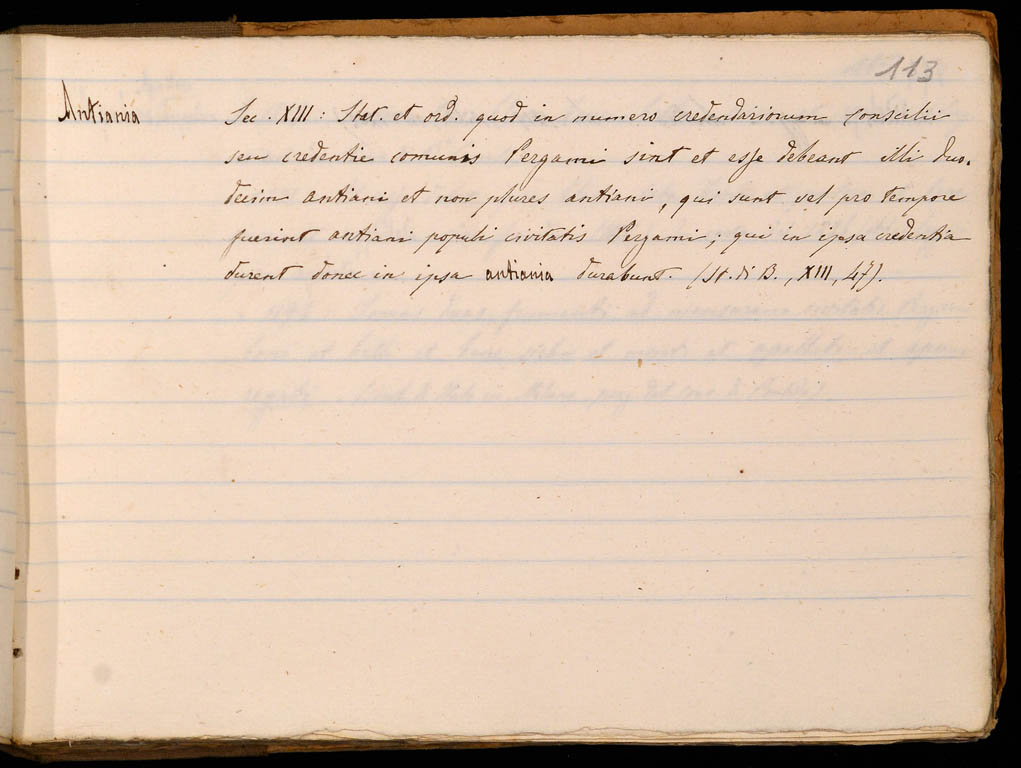 113
Antiania Sec. XIII: Stat. et ord. quod in numero credendariorum Conscilii
seu credentie comunis Pergami sint et esse debeant illi duo-
decim antiani et non plures antiani, qui sunt vel pro tempore
fuerint antiani populi civitatis Pergami; qui in ipsa credentia
durent donec in ipsa antiania durabunt. (St. di B., XIII, 47).